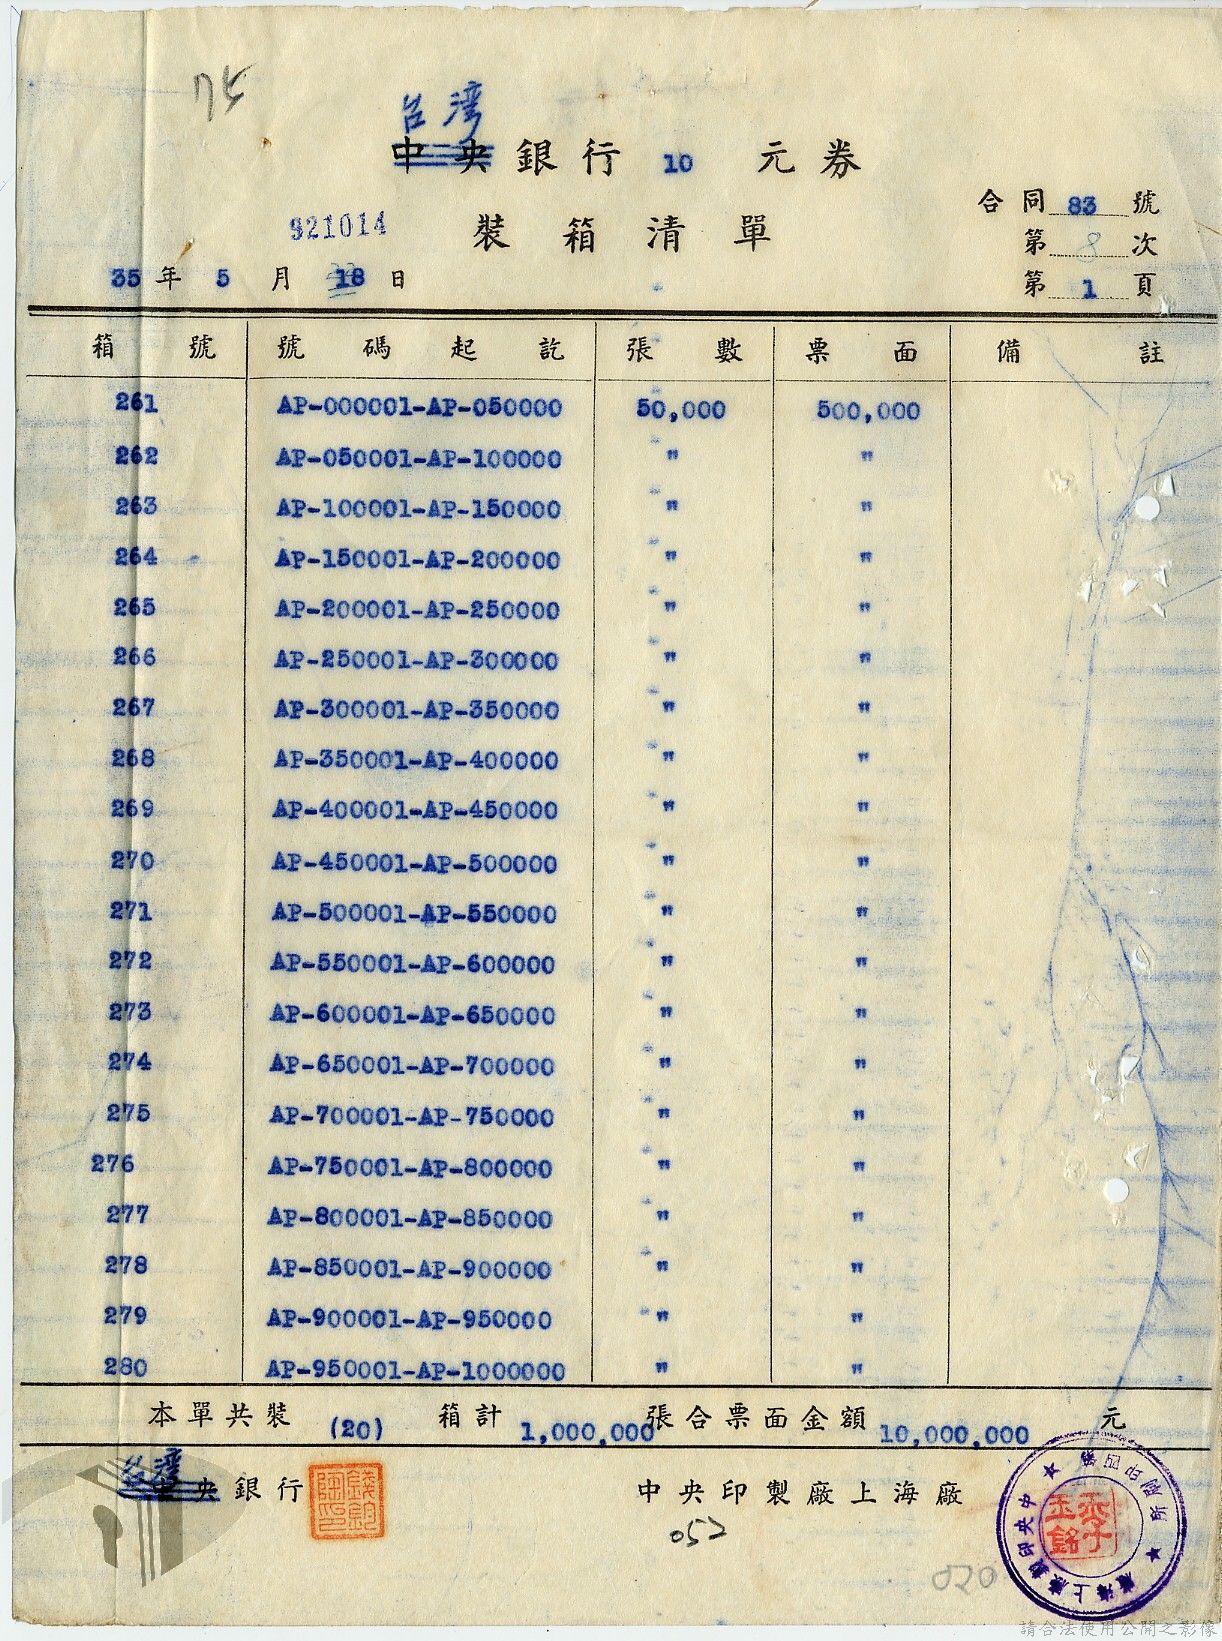 75
台灣
中央銀行 10 元券
921014 裝箱清單
合同 83 號
第 8 次
35 年 5 月 18 日
第 1 頁
箱號 號碼起訖 張數 票面 備註
261 AP-000001-AP-050000 50,000 500,000
262 AP-050001-AP-100000 " "
263 AP-100001-AP-150000 " "
264 AP-150001-AP-200000 " "
265 AP-200001-AP-250000 " "
266 AP-250001-AP-300000 " "
267 AP-300001-AP-350000 " "
268 AP-350001-AP-400000 " "
269 AP-400001-AP-450000 " "
270 AP-450001-AP-500000 " "
271 AP-500001-AP-550000 " "
272 AP-550001-AP-600000 " "
273 AP-600001-AP-650000 " "
274 AP-650001-AP-700000 " "
275 AP-700001-AP-750000 " "
276 AP-750001-AP-800000 " "
277 AP-800001-AP-850000 " "
278 AP-850001-AP-900000 " "
279 AP-900001-AP-950000 " "
280 AP-950001-AP-1000000 " "
本單共裝 (20) 箱計 1,000,000 張合票面金額 10,000,000 元
台灣
中央銀行 中央印製廠上海廠
052
020
請合法使用公開之影像